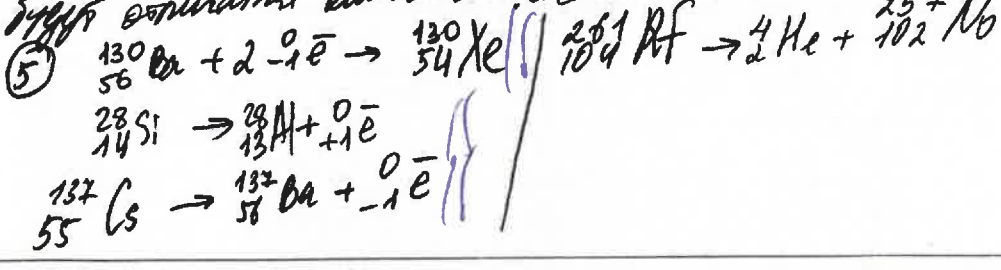 будут отличаться
⑤ ¹³⁰₅₆Ba + 2 ⁰₋₁e⁻ → ¹³⁰₅₄Xe ²⁶¹₁₀₄Rf → ⁴₂He + ²⁵⁷₁₀₂No
²⁸₁₄Si → ²⁸₁₃Al + ⁰₊₁e⁻
¹³⁷₅₅Cs → ¹³⁷₅₆Ba + ⁰₋₁e⁻